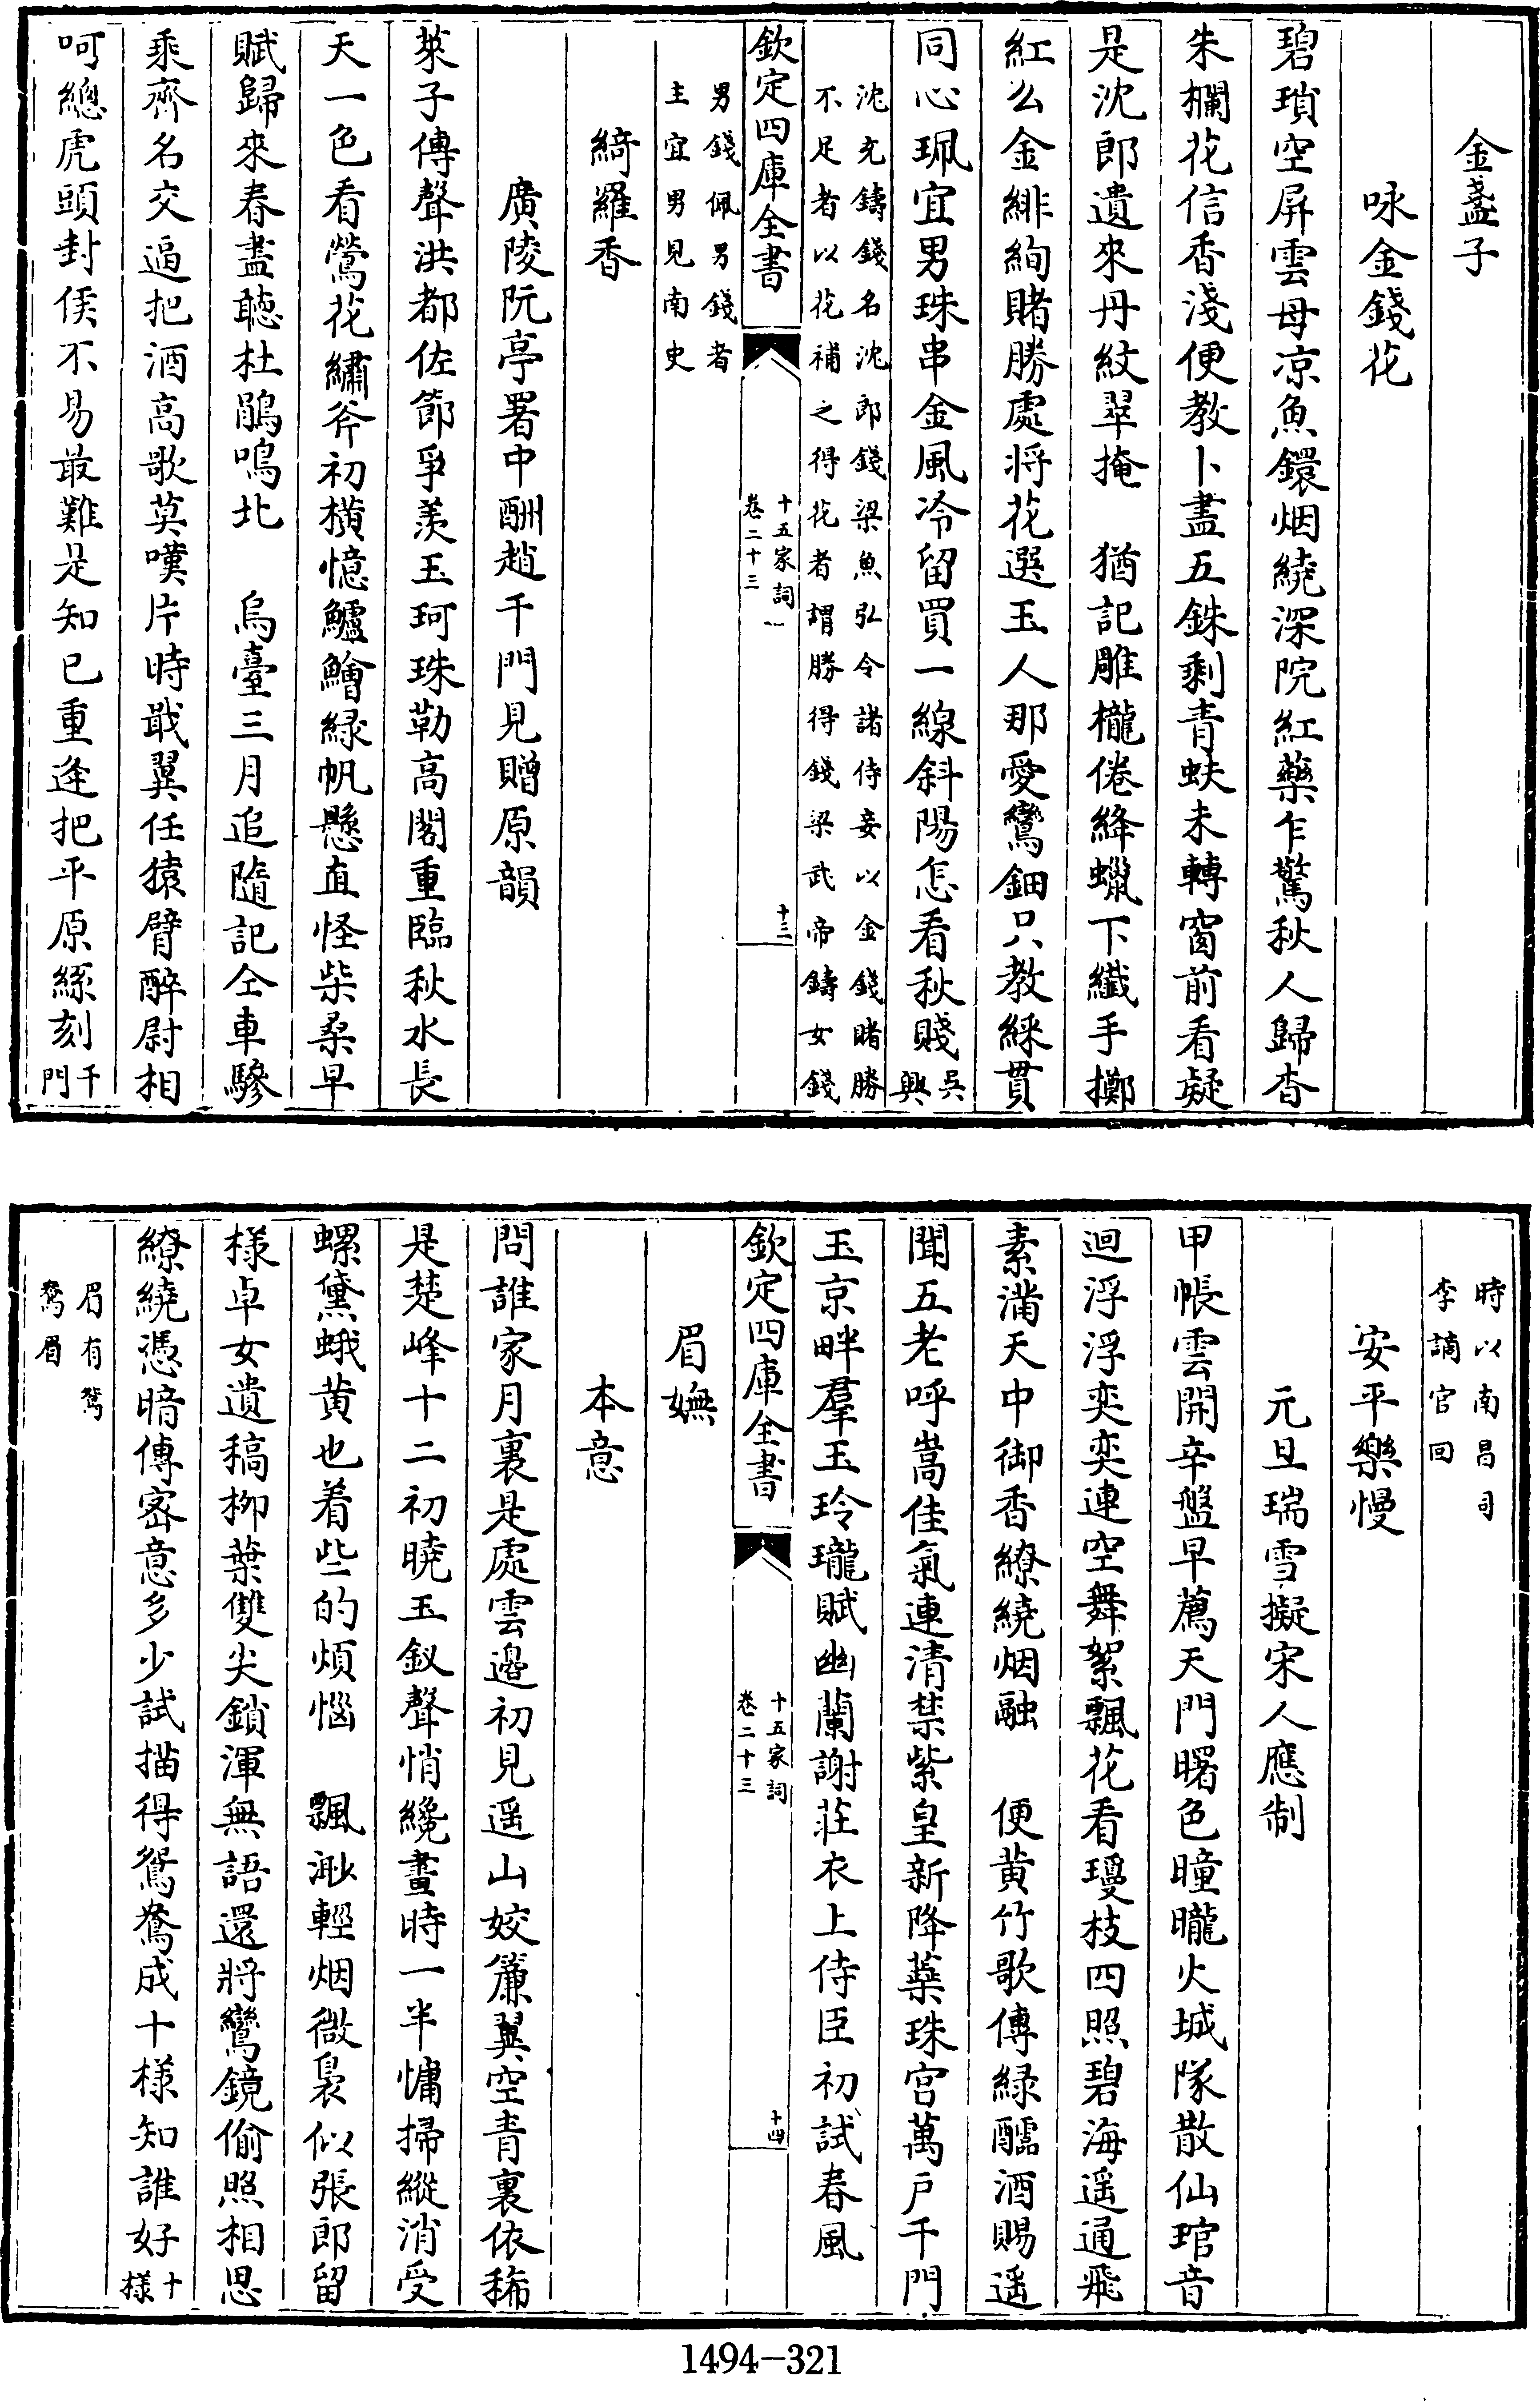 金盞子
咏金錢花
碧瑣空屏雲母凉魚鐶烟繞深院紅藥乍驚秋人歸杳
朱欄花信香淺便教卜盡五銖剩青蚨未轉窗前看凝
是沈郎遺來丹紋翠掩　猶記雕櫳倦絳蠟下纖手擲
紅么金緋絢賭勝處將花選玉人那愛鸞鈿只教綵貫
同心珮宜男珠串金風冷留買一線斜陽怎看秋賤吳興
沈充鑄錢名沈郎錢梁魚弘令諸侍妾以金錢賭勝
不足者以花補之得花者謂勝得錢梁武帝鑄女錢
欽定四庫全書
十五家詞
卷二十三
十三
男錢佩男錢者
主宜男見南史
綺羅香
廣陵阮亭署中酬趙千門見贈原韻
萊子傳聲洪都佐節爭羨玉珂珠勒高閣重臨秋水長
天一色看鶯花繡斧初橫憶鱸鱠綠帆懸直怪柴桑早
賦歸來春盡聽杜鵑鳴北　烏臺三月追隨記仝車驂
乘齊名交逼把酒高歌莫嘆片時戢翼任猿臂醉尉相
呵總虎頭封侯不易最難是知已重逢把平原絲刻千門
時以南昌司
李謫官回
安平樂慢
元旦瑞雪擬宋人應制
甲帳雲開辛盤早薦天門曙色曈曨火城隊散仙琯音
迴浮浮奕奕連空舞絮飄花看瓊枝四照碧海遥通飛
素滿天中御香繚繞烟融　便黃竹歌傳綠醽酒賜遥
聞五老呼嵩佳氣連清禁紫皇新降蘂珠宮萬戶千門
玉京畔羣玉玲瓏賦幽蘭謝莊衣上侍臣初試春風
欽定四庫全書
十五家詞
卷二十三
十四
眉嫵
本意
問誰家月裏是處雲邊初見遥山姣簾翼空青裏依稀
是楚峰十二初曉玉釵聲悄纔畫時一半慵掃縱消受
螺黛蛾黃也着些的煩惱　飄渺輕烟微裊似張郎留
樣卓女遺稿柳葉雙尖鎖渾無語還將鸞鏡偷照相思
繚繞憑暗傳密意多少試描得鴛鴦成十樣知誰好十樣
眉有鴛
鴦眉
1494-321